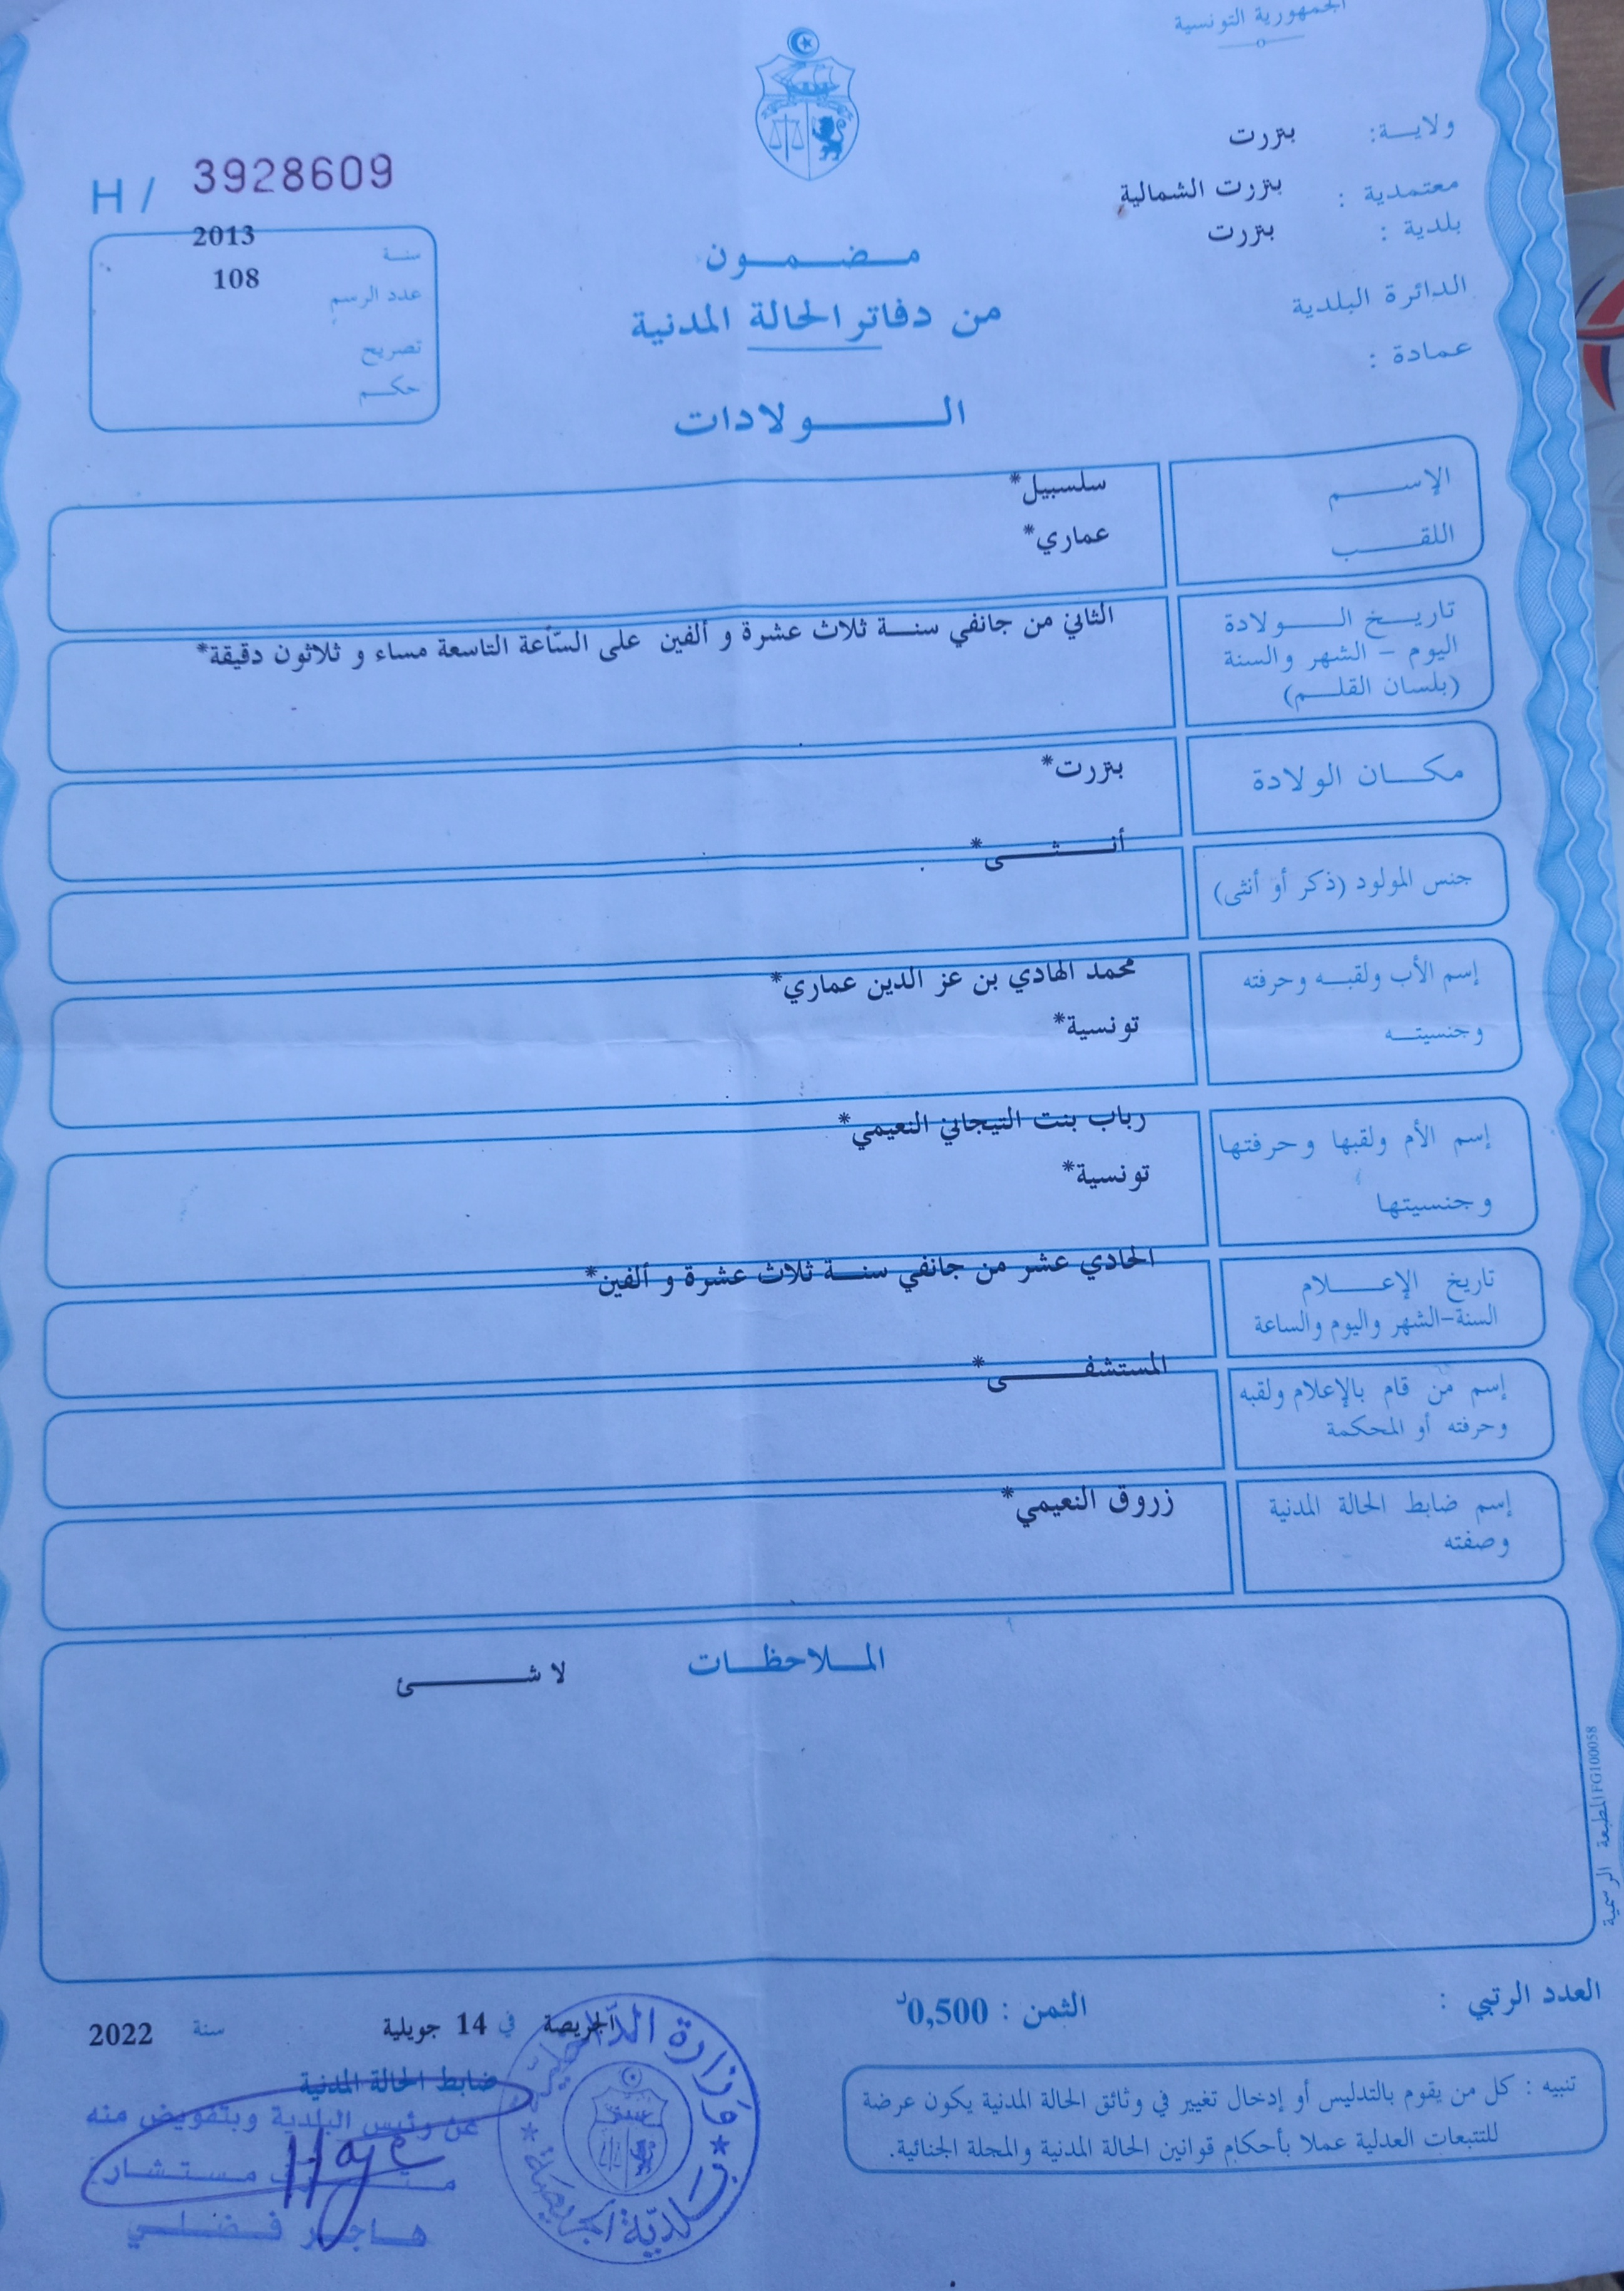 الجمهورية التونسية
ولايـــة: بنزرت
معتمدية : بنزرت الشمالية
بلدية : بنزرت
الدائرة البلدية
عمادة :
H / 3928609
سنـة 2013
عدد الرسم 108
تصريح
حكـــم
مـــضـــمـــون
من دفاتر الحالة المدنية
الـــــــولادات
الإســـــم سلسبيل*
اللقـــــب عماري*
تاريـــخ الــــولادة
اليوم – الشهر والسنة
(بلسان القلـــم)
الثاني من جانفي سنـــة ثلاث عشرة و ألفين على السّاعة التاسعة مساء و ثلاثون دقيقة*
مكـــان الولادة بنزرت*
جنس المولود (ذكر أو أنثى) أنـــثـــى*
إسم الأب ولقبـــه وحرفته محمد الهادي بن عز الدين عماري*
وجنسيتـــه تونسية*
إسم الأم ولقبها وحرفتها رباب بنت التيجاني النعيمي*
وجنسيتها تونسية*
تاريخ الإعـــــلام
السنة-الشهر واليوم والساعة
الحادي عشر من جانفي سنـــة ثلاث عشرة و ألفين*
إسم من قام بالإعلام ولقبه
وحرفته أو المحكمة
المستشفـــــى*
إسم ضابط الحالة المدنية
وصفته
زروق النعيمي*
المـــلاحظـــات
لا شـــــئ
المطبعة الرسمية FG100058
العدد الرتبي :
الثمن : 0,500د
الجريصة في 14 جويلية سنة 2022
ضابط الحالة المدنية
عن رئيس البلدية وبتفويض منه
مستشار
هاجر فضلي
وزارة الداخلية
بلدية الجريصة
تنبيه : كل من يقوم بالتدليس أو إدخال تغيير في وثائق الحالة المدنية يكون عرضة
للتتبعات العدلية عملا بأحكام قوانين الحالة المدنية والمجلة الجنائية.